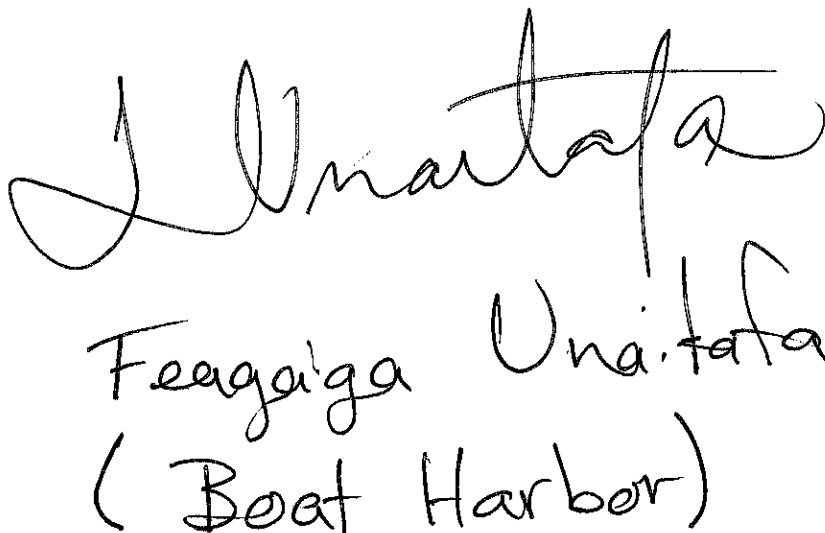 Unaitafa
Feagaiga Unaitafa
(Boat Harbor)